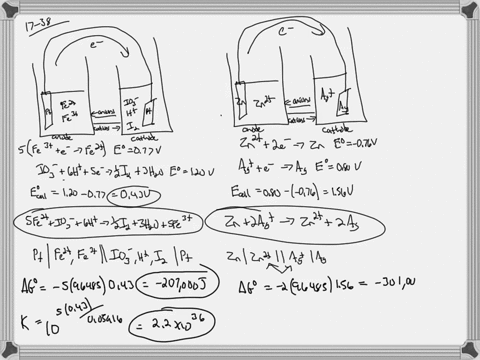 17-38
e⁻
Pt
Fe²⁺
Fe³⁺
IO₃⁻
H⁺
I₂
Pt
anions
cations
anode
cathode
5(Fe³⁺ + e⁻ → Fe²⁺) E° = 0.77 V
IO₃⁻ + 6H⁺ + 5e⁻ → ½I₂ + 3H₂O E° = 1.20 V
E°cell = 1.20 - 0.77 = 0.43V
5Fe²⁺ + IO₃⁻ + 6H⁺ → ½I₂ + 3H₂O + 5Fe³⁺
Pt | Fe²⁺, Fe³⁺ || IO₃⁻, H⁺, I₂ | Pt
ΔG° = -5(96485)0.43 = -207,000J
K = 10^5(0.43)/0.05916 = 2.2 x 10³⁶
e⁻
Zn
Zn²⁺
Ag⁺
Ag
anions
cations
anode
cathode
Zn²⁺ + 2e⁻ → Zn E° = -0.76V
Ag⁺ + e⁻ → Ag E° = 0.80 V
Ecell = 0.80 - (-0.76) = 1.56V
Zn + 2Ag⁺ → Zn²⁺ + 2Ag
Zn | Zn²⁺ || Ag⁺ | Ag
ΔG° = -2(96485)1.56 = -301,00